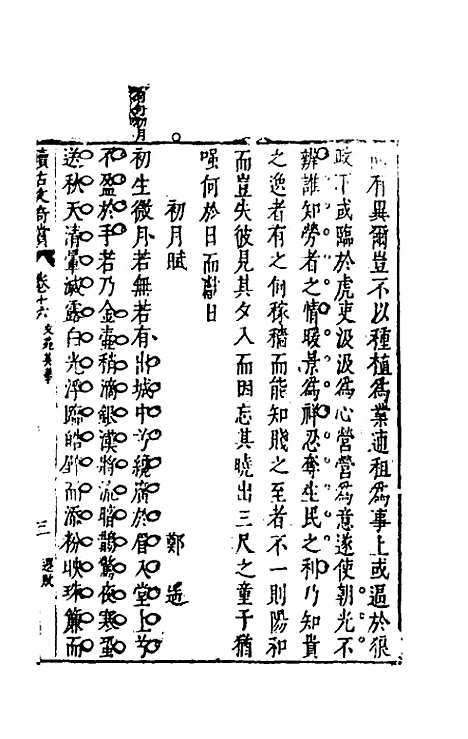 有異爾豈不以種植爲業逋租爲事上或逼於狼
政下或臨於虎吏汲汲爲心營營爲意遂使朝光不
辨誰知勞者之情暖景爲祥忍奪生民之利乃知貴
之逸者有之何稼穡而能知賤之至者不一則陽和
而豈失彼見其夕入而因忘其曉出三尺之童子猶
嗤何於日而獻日
初月賦
鄭遙
初生微月若無若有出城中兮纔廣於眉入堂上兮
不盈於手若乃金壺稍滴銀漢將流暗鵲驚夜寒蛩
送秋天清暈滅露白光浮臨皓壁而添粉映珠簾而
續古文奇賞
卷十六
文苑英華
三
選賦
初月